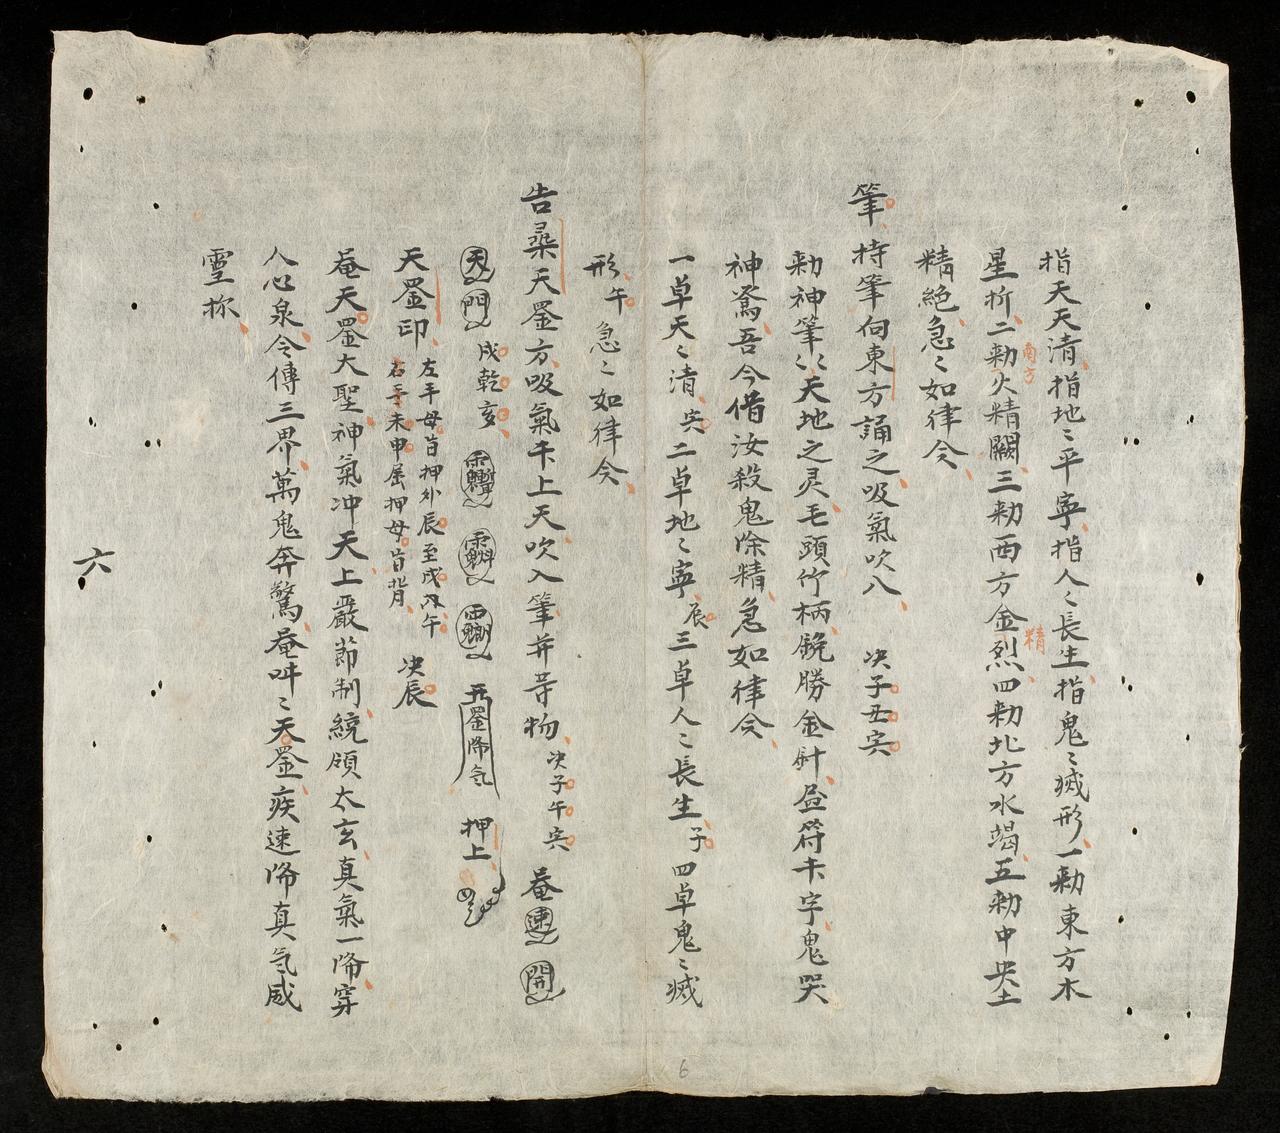 指天天清指地〻平寧指人〻長生指鬼〻滅形一勅東方木
星折二勅火精闕三勅西方金烈四勅北方水竭五勅中央土
南方
精
精絶急〻如律令
筆持筆向東方誦之吸氣吹入 决子丑寅
勅神筆〻天地之灵毛頭竹柄銳勝金針益符卡字鬼哭
神驚吾今借汝殺鬼除精急如律令
一卓天〻清寅二卓地〻寧辰三卓人〻長生子四卓鬼〻滅
形午急〻如律令
告桒天罡方吸氣卡上天吹入筆并等物 决子午寅 菴速開
天門戌乾亥 五罡降气 押上
天罡印 左手母旨押外辰至戌次午
右手未申屈押母旨背 决辰
菴天罡大聖神氣冲天上嚴節制統領太玄真氣一降穿
人心泉令傳三界萬鬼奔驚菴吽〻天罡疾速降真气威
霊振
六
6